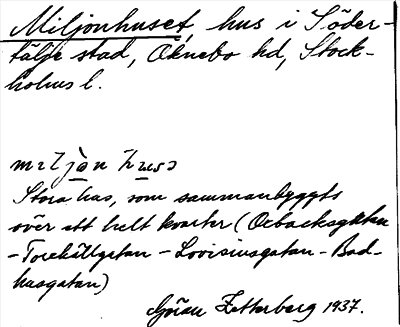 Miljonhuset, hus i Söder-
tälje stad, Öknebo hd, Stock-
holms l.
Stora hus, som sammanbyggts
över ett helt kvarter (Orbacksgatan
– Torekällgatan – Lovisinsgatan – Bad-
husgatan)
Göran Zetterberg 1937.